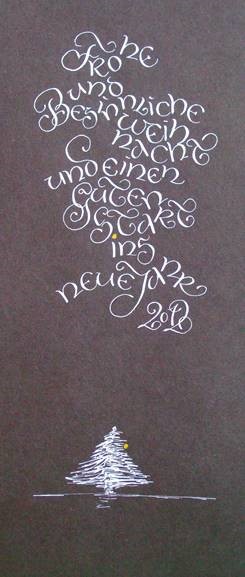 FROhe
und
Besinnliche
weih
nacht
und einen
guten
Start
ins
neue Jahr
2012